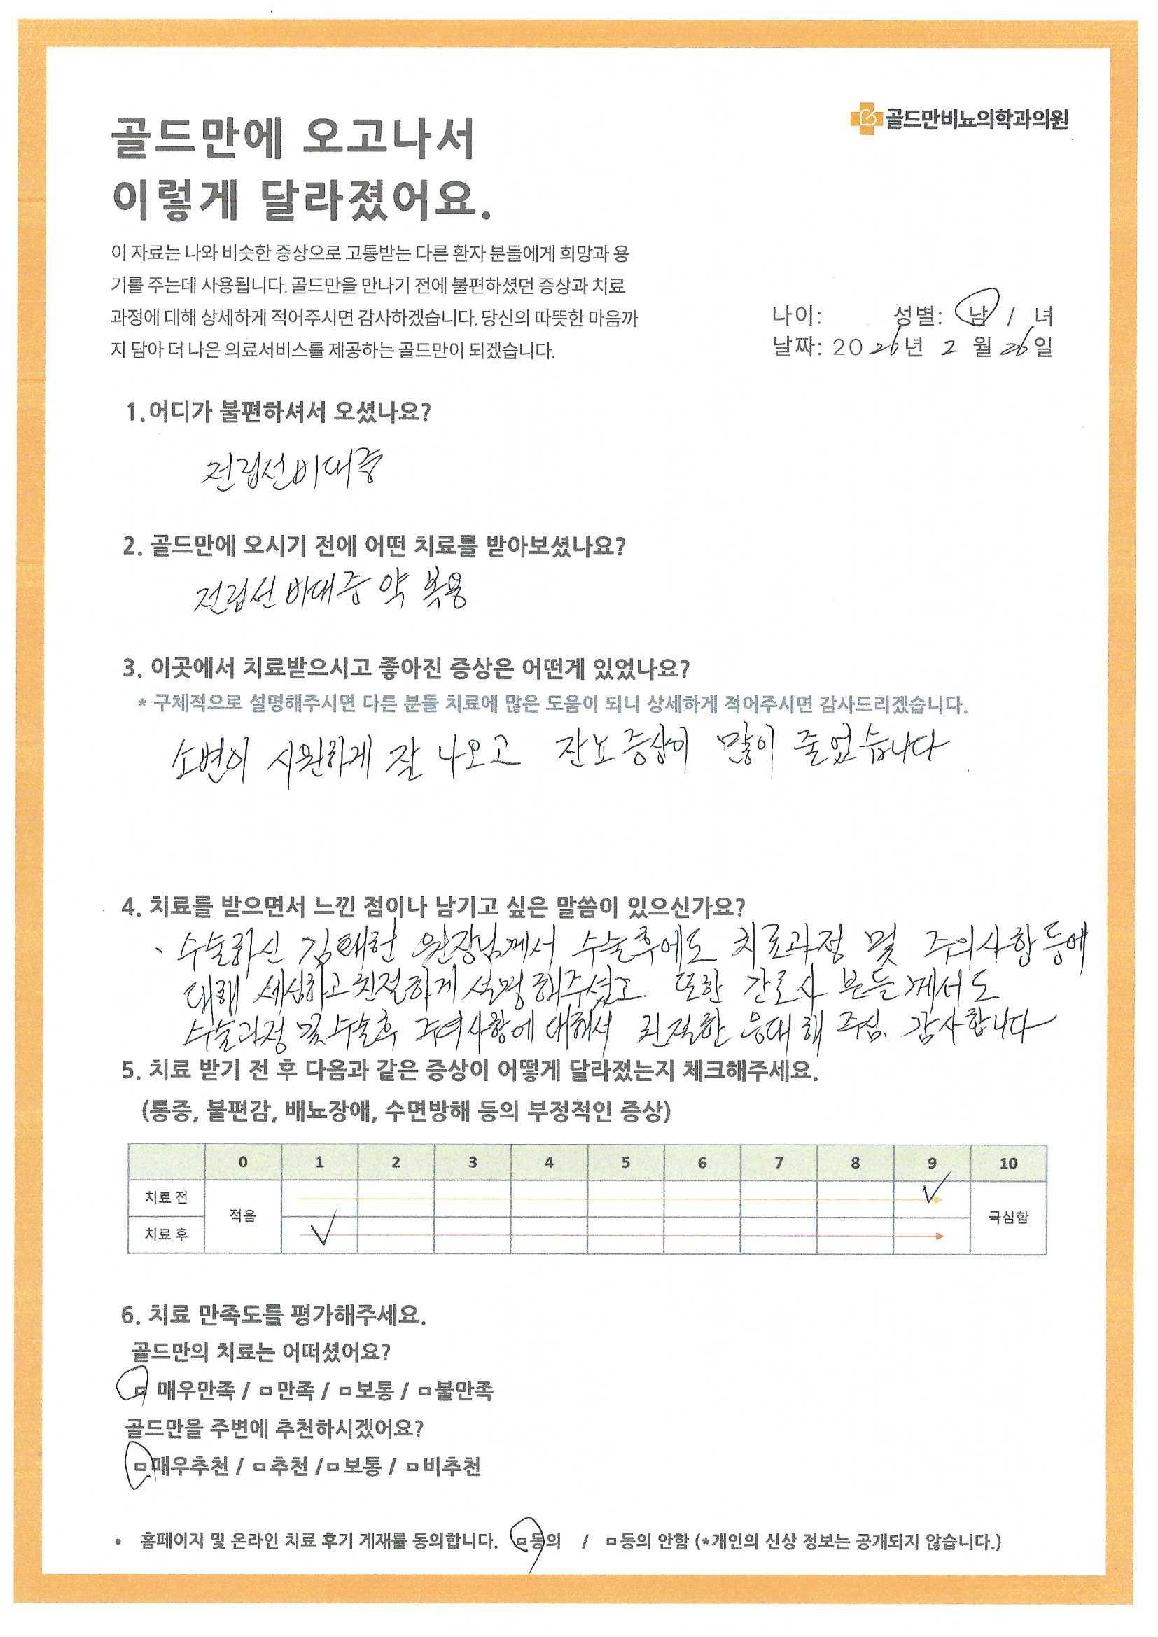 골드만비뇨의학과의원
골드만에 오고나서
이렇게 달라졌어요.
이 자료는 나와 비슷한 증상으로 고통받는 다른 환자 분들에게 희망과 용
기를 주는데 사용됩니다. 골드만을 만나기 전에 불편하셨던 증상과 치료
과정에 대해 상세하게 적어주시면 감사하겠습니다. 당신의 따뜻한 마음까
지 담아 더 나은 의료서비스를 제공하는 골드만이 되겠습니다.
나이: 성별: 남 / 녀
날짜: 2026년 2월 26일
1. 어디가 불편하셔서 오셨나요?
전립선비대증
2. 골드만에 오시기 전에 어떤 치료를 받아보셨나요?
전립선비대증 약 복용
3. 이곳에서 치료받으시고 좋아진 증상은 어떤게 있었나요?
* 구체적으로 설명해주시면 다른 분들 치료에 많은 도움이 되니 상세하게 적어주시면 감사드리겠습니다.
소변이 시원하게 잘 나오고 잔뇨증상이 많이 줄었습니다
4. 치료를 받으면서 느낀 점이나 남기고 싶은 말씀이 있으신가요?
수술하신 김태헌 원장님께서 수술후에도 치료과정 및 주의사항 등에
대해 세심하고 친절하게 설명해주셨고 또한 간호사 분들께서도
수술과정 및 수술후 주의사항에 대해서 친절한 응대해 주심. 감사합니다
5. 치료 받기 전 후 다음과 같은 증상이 어떻게 달라졌는지 체크해주세요.
(통증, 불편감, 배뇨장애, 수면방해 등의 부정적인 증상)
0 1 2 3 4 5 6 7 8 9 10
치료 전 적음 극심함
치료 후
6. 치료 만족도를 평가해주세요.
골드만의 치료는 어떠셨어요?
□ 매우만족 / □ 만족 / □ 보통 / □ 불만족
골드만을 주변에 추천하시겠어요?
□ 매우추천 / □ 추천 / □ 보통 / □ 비추천
• 홈페이지 및 온라인 치료 후기 게재를 동의합니다. □ 동의 / □ 동의 안함 (*개인의 신상 정보는 공개되지 않습니다.)